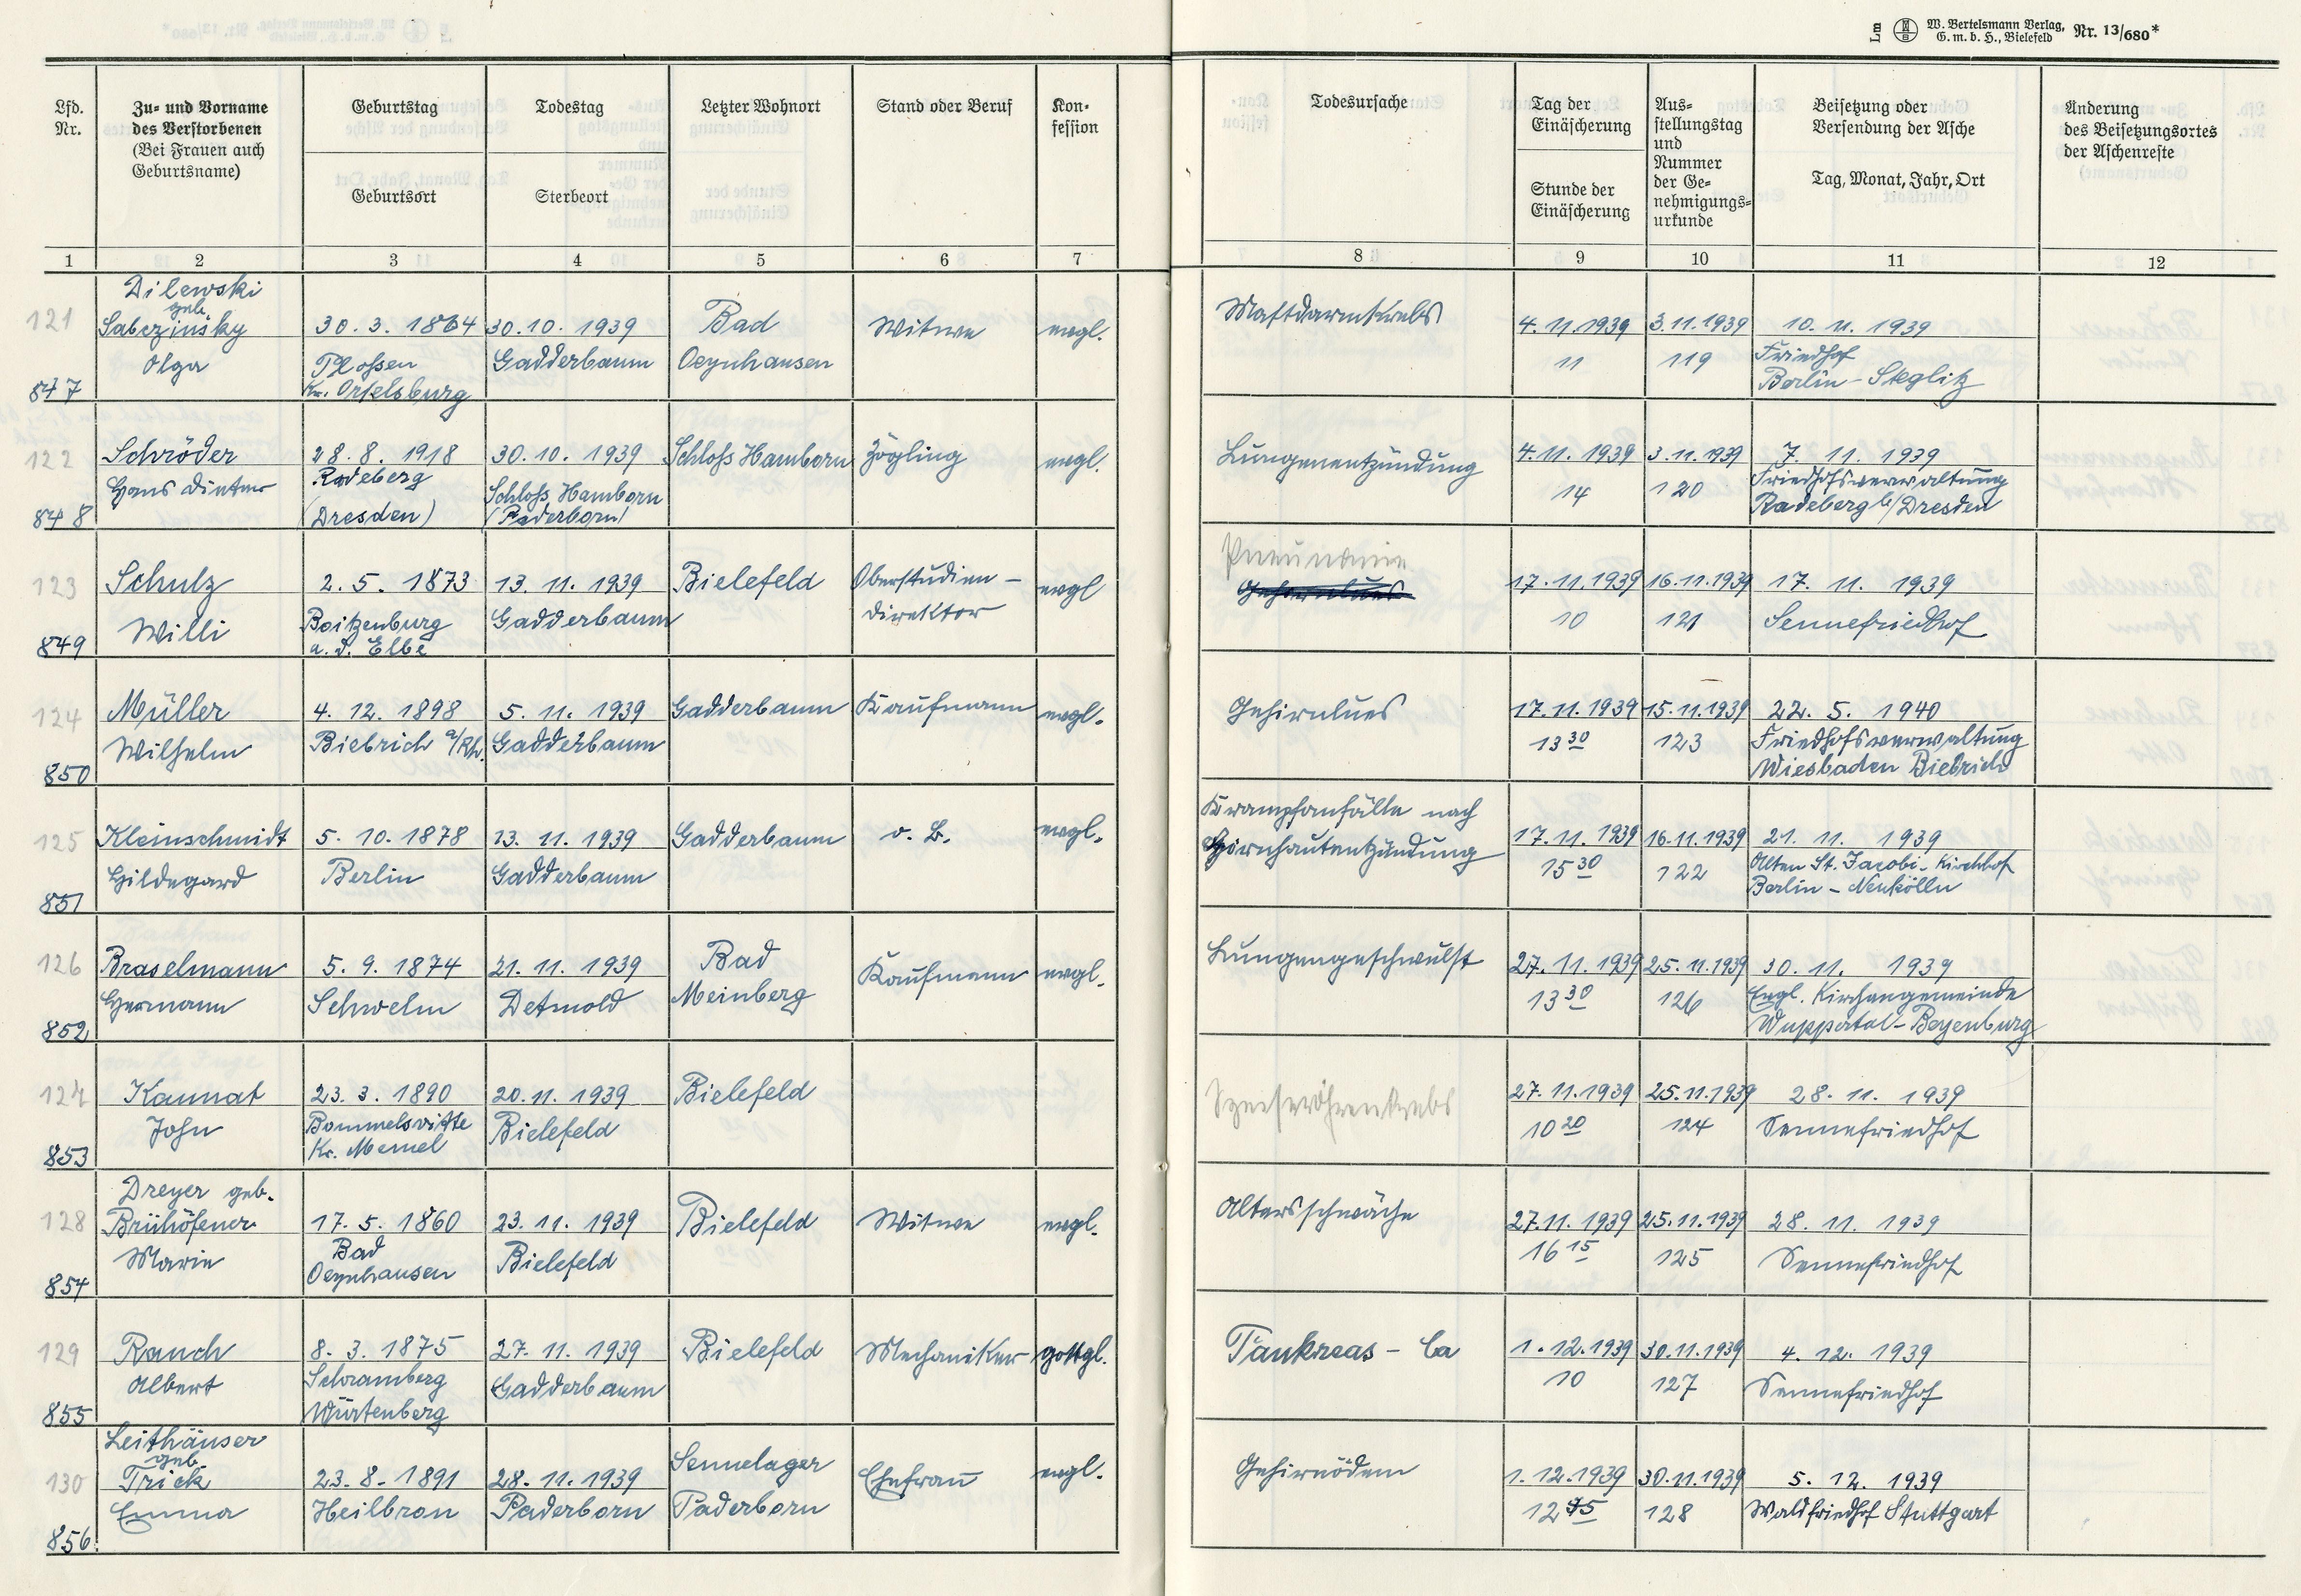 Lm W. Bertelsmann Verlag, G. m. b. H., Bielefeld Nr. 13/680*
Lfd. Nr.
Zu- und Vorname des Verstorbenen (Bei Frauen auch Geburtsname)
Geburtstag
Geburtsort
Todestag
Sterbeort
Letzter Wohnort
Stand oder Beruf
Kon-
fession
Todesursache
Tag der Einäscherung
Stunde der Einäscherung
Aus-
stellungstag
und
Nummer
der Ge-
nehmigungs-
urkunde
Beisetzung oder Versendung der Asche
Tag, Monat, Jahr, Ort
Änderung
des Beisetzungsortes
der Aschenreste
1 2 3 4 5 6 7 8 9 10 11 12
Dilewski
geb.
121 30. 3. 1864 30. 10. 1939 Bad Witwe evgl. Mastdarmkrebs 4. 11. 1939 3. 11. 1939 10. 11. 1939
Olga Gadderbaum Oeynhausen 11 119 Friedhof
847 Kr. Ortelsburg Berlin-Steglitz
122 Schröder 28. 8. 1918 30. 10. 1939 Schloß Hamborn Zögling evgl. Lungenentzündung 4. 11. 1939 3. 11. 1939 7. 11. 1939
Hans Dieter Radeberg Schloß Hamborn 14 120 Friedhofsverwaltung
848 (Dresden) (Paderborn) Radeberg b/Dresden
Pneumonie
123 Schulz 2. 5. 1873 13. 11. 1939 Bielefeld Oberstudien- evgl Gehirnlues 17. 11. 1939 16. 11. 1939 17. 11. 1939
Willi Boitzenburg Gadderbaum direktor 10 121 Sennefriedhof
849 a. d. Elbe
124 Müller 4. 12. 1898 5. 11. 1939 Gadderbaum Kaufmann evgl. Gehirnlues 17. 11. 1939 15. 11. 1939 22. 5. 1940
Wilhelm Biebrich a/Rh. Gadderbaum 13 30 123 Friedhofsverwaltung
850 Wiesbaden Biebrich
Krampfanfälle nach
125 Kleinschmidt 5. 10. 1878 13. 11. 1939 Gadderbaum o. B. evgl. Hirnhautentzündung 17. 11. 1939 16. 11. 1939 21. 11. 1939
Hildegard Berlin Gadderbaum 15 30 122 Alten St. Jacobi-Kirchhof
851 Berlin - Neukölln
126 Braselmann 5. 9. 1874 21. 11. 1939 Bad Kaufmann evgl. Lungengeschwulst 27. 11. 1939 25. 11. 1939 30. 11. 1939
Hermann Schwelm Detmold Meinberg 13 30 126 Evgl. Kirchengemeinde
852 Wuppertal-Beyenburg
127 Kannat 23. 3. 1890 20. 11. 1939 Bielefeld Speiseröhrenkrebs 27. 11. 1939 25. 11. 1939 28. 11. 1939
John Bommelsvitte Bielefeld 10 20 124 Sennefriedhof
853 Kr. Memel
Dreyer geb.
128 Brühöfener 17. 5. 1860 23. 11. 1939 Bielefeld Witwe evgl. Altersschwäche 27. 11. 1939 25. 11. 1939 28. 11. 1939
Marie Bad Bielefeld 16 15 125 Sennefriedhof
854 Oeynhausen
129 Rauch 8. 3. 1875 27. 11. 1939 Bielefeld Mechaniker gottgl. Pankreas - Ca 1. 12. 1939 30. 11. 1939 4. 12. 1939
Albert Schramberg Gadderbaum 10 127 Sennefriedhof
855 Würtenberg
Leithäuser
geb.
130 Trick 23. 8. 1891 28. 11. 1939 Sennelager Ehefrau evgl. Gehirnödem 1. 12. 1939 30. 11. 1939 5. 12. 1939
Emma Heilbron Paderborn Paderborn 12 45 128 Waldfriedhof Stuttgart
856